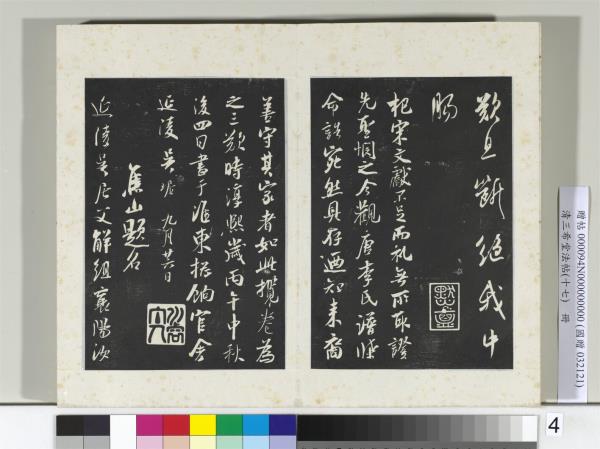 歎且斷絕我中
腸
杞宋文獻不足而禮無所取證
先聖憫之今觀唐李氏譜牒
命誥宛然具存迺知来裔
善守其家者如此攬卷為
之三歎時淳熙歲丙午中秋
後四日書于淮東揔餉官舍
延陵吳琚 九月廿六日
焦山題名
延陵吳居父解組襄陽次
贈帖 000094N000000000 (國贈 032121)
清三希堂法帖(十七) 冊
4